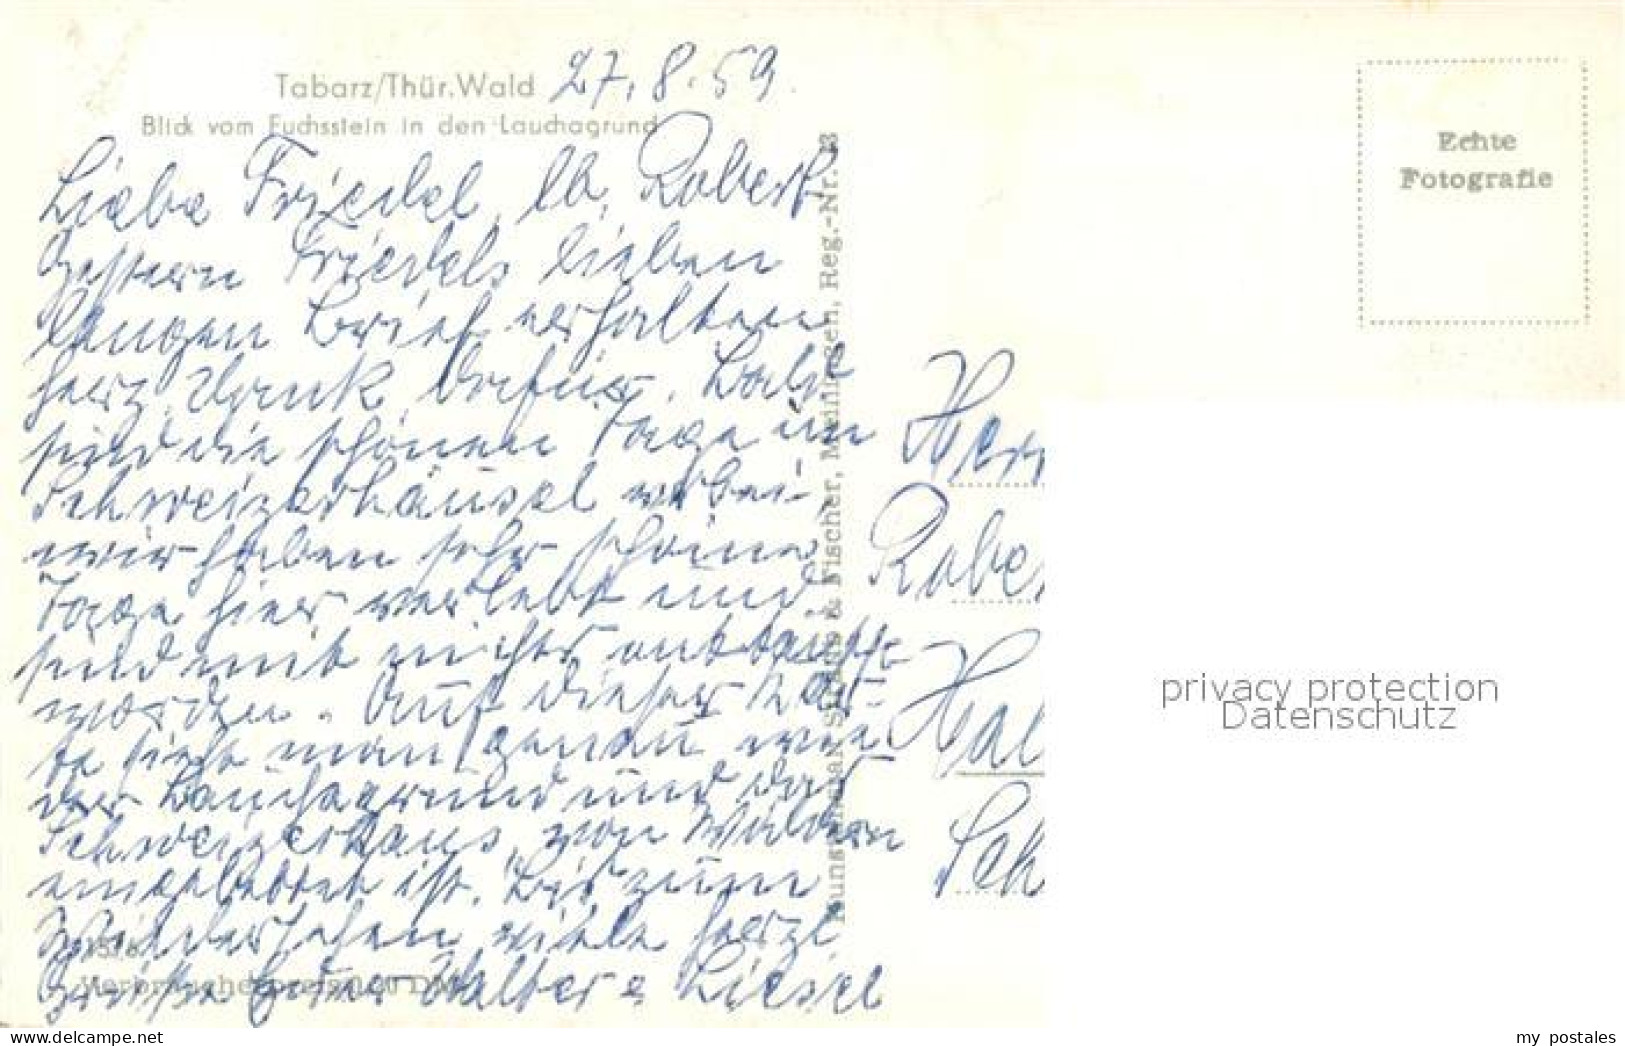 Tabarz/Thür. Wald 27.8.59.
Blick vom Fuchsstein in den Lauchagrund
Liebe Friedel, lb. Robert
Gestern Friedels lieben
langen Brief erhalten
herz. Dank dafür. Bald
sind die schönen Tage im
Schweizerhäusel vorbei
wir haben sehr schöne
Tage hier verlebt und
sind mit nichts enttäuscht
worden. Auf dieser Kar-
te sieht man genau wie
der Lauchagrund und das
Schweizerhaus von Wäldern
eingebettet ist. Bis zum
Wiedersehen viele herzl.
Grüße Eure Walter & Liesel
Verbraucherpreis DM
& Fischer, Meiningen, Reg.-Nr.
Echte
Fotografie
Herr
Robe
Hal
Sch
privacy protection
Datenschutz
my postales